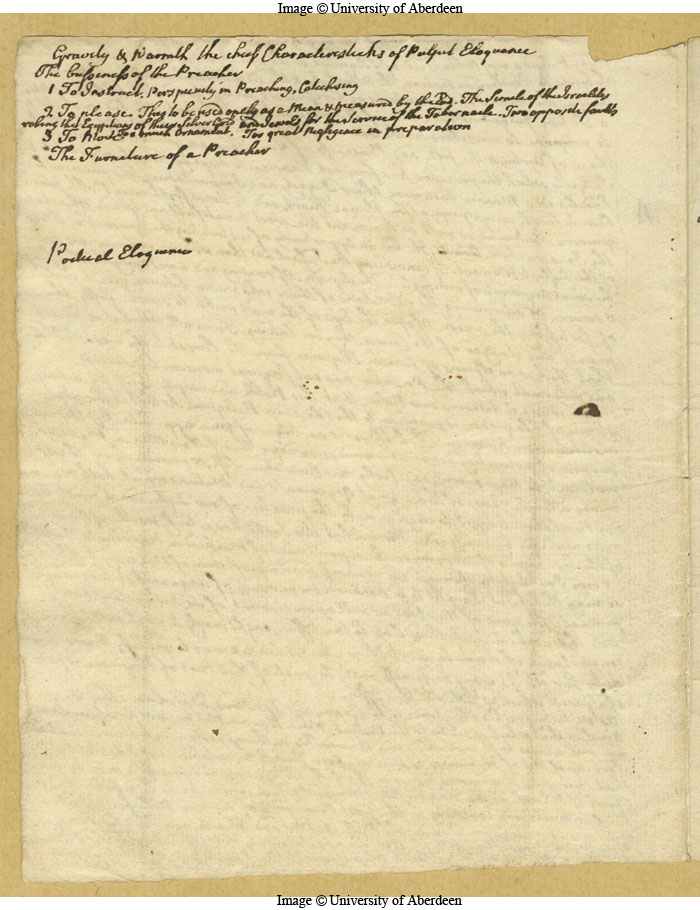 Image © University of Aberdeen
Gravity & Warmth the chief Characteristicks of Pulpit Eloquence
The bussiness of the Preacher
1 To Instruct. Perspicuity in Preaching, Catechising
2 To please. This to be used only as a Mean & measured by the End. The Simile of the Israelites
robing the Egyptians of their silver Gold and Jewels for the Service of the Tabernacle. Two opposite faults
3 To Move Too much Ornament. Too great Negligence in preparation
The Furneture of a Preacher
Poetical Eloquence
Image © University of Aberdeen